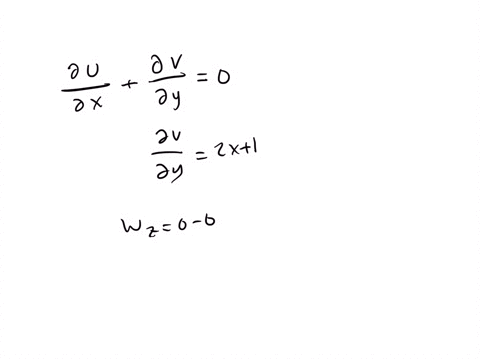 ∂U/∂x + ∂V/∂y = 0
∂v/∂y = 2x+1
W_z = 0-0